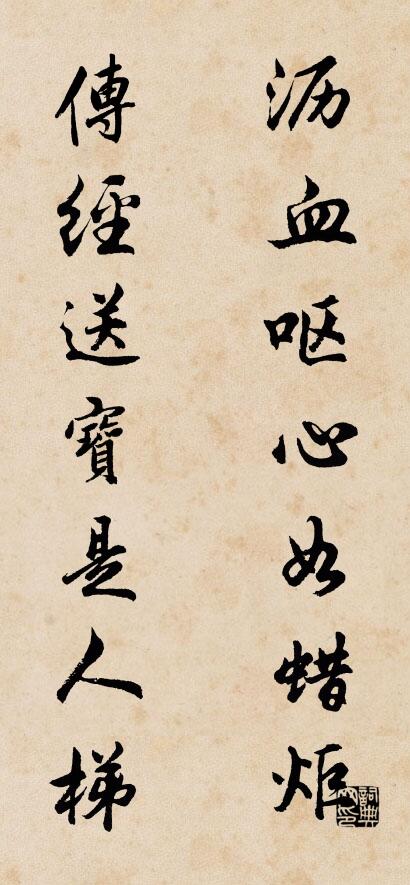 沥血呕心如蜡炬
傳經送寶是人梯
詞典